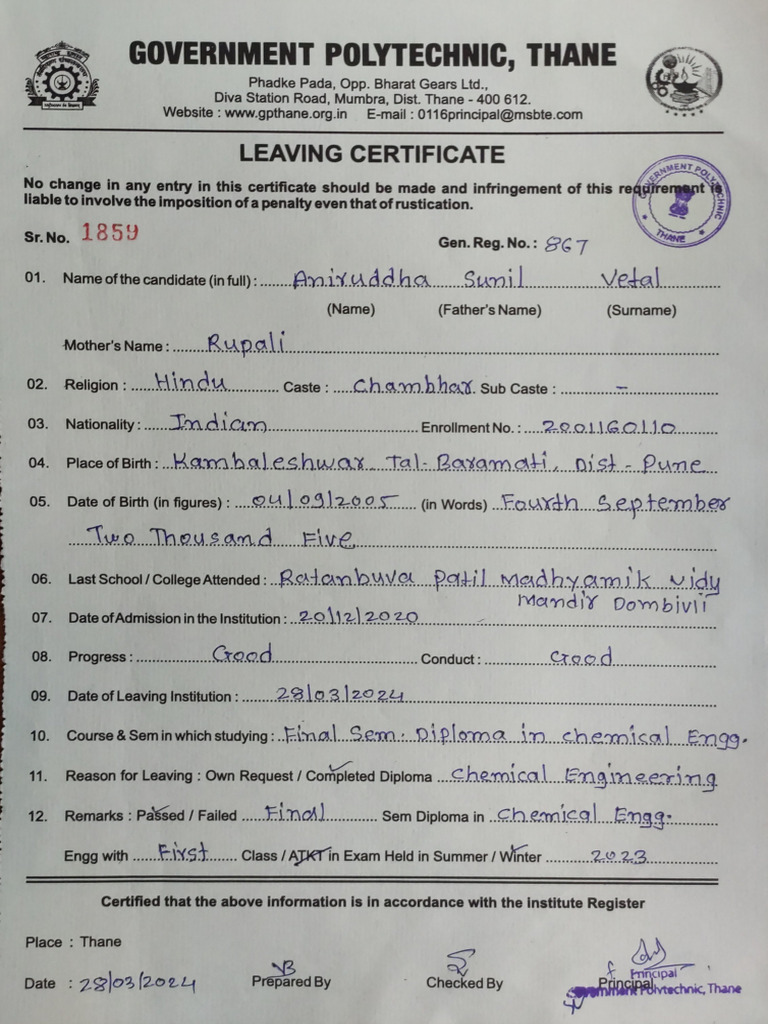 GOVERNMENT POLYTECHNIC, THANE
Phadke Pada, Opp. Bharat Gears Ltd.,
Diva Station Road, Mumbra, Dist. Thane - 400 612.
Website : www.gpthane.org.in E-mail : 0116principal@msbte.com
LEAVING CERTIFICATE
No change in any entry in this certificate should be made and infringement of this requirement is
liable to involve the imposition of a penalty even that of rustication.
GOVERNMENT POLYTECHNIC
THANE
Sr. No. 1859 Gen. Reg. No. : 867
01. Name of the candidate (in full) : Aniruddha Sunil Vetal
(Name) (Father's Name) (Surname)
Mother's Name : Rupali
02. Religion : Hindu Caste : Chambhar Sub Caste : -
03. Nationality : Indian Enrollment No. : 2001160110
04. Place of Birth : Kambaleshwar Tal- Baramati, Dist - Pune
05. Date of Birth (in figures) : 04/09/2005 (in Words) Fourth September
Two Thousand Five
06. Last School / College Attended : Ratanbuva Patil Madhyamik Vidy
Mandir Dombivli
07. Date of Admission in the Institution : 20/12/2020
08. Progress : Good Conduct : Good
09. Date of Leaving Institution : 28/03/2024
10. Course & Sem in which studying : Final Sem. Diploma in chemical Engg.
11. Reason for Leaving : Own Request / Completed Diploma Chemical Engineering
12. Remarks : Passed / Failed Final Sem Diploma in Chemical Engg.
Engg with First Class / ATKT in Exam Held in Summer / Winter 2023
Certified that the above information is in accordance with the institute Register
Place : Thane
Date : 28/03/2024 Prepared By Checked By Principal
Principal
Government Polytechnic, Thane